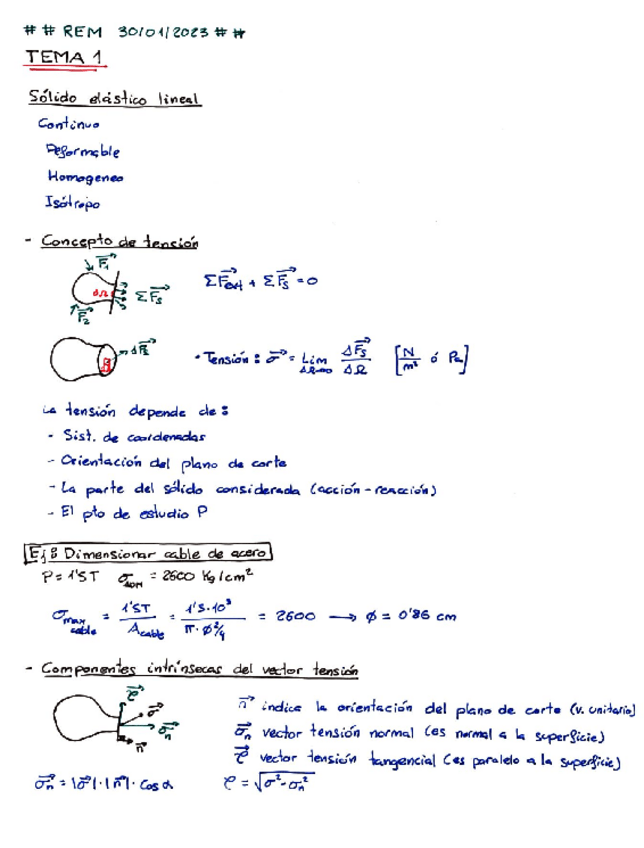 ## REM 30/01/2023 ##
TEMA 1
Sólido elástico lineal
Continuo
Deformable
Homogeneo
Isótropo
- Concepto de tensión
F₁
ΔΩ
Σ Fs
F₂
Σ Fext + Σ Fs = 0
ΔFs
• Tensión: σ = Lim ΔΩ→0 ΔFs / ΔΩ [N/m² ó Pa]
La tensión depende de:
- Sist. de coordenadas
- Orientación del plano de corte
- La parte del sólido considerada (acción-reacción)
- El pto de estudio P
Ej: Dimensionar cable de acero
P = 1'5T σADM = 2600 Kg/cm²
σmax cable = 1'5T / Acable = 1'5·10³ / π·φ²/4 = 2600 → φ = 0'86 cm
- Componentes intrínsecas del vector tensión
τ σ σn n
n indica la orientación del plano de corte (v. unitario)
σn vector tensión normal (es normal a la superficie)
τ vector tensión tangencial (es paralelo a la superficie)
σn = |σ|·|n|·cos α τ = √σ²-σn²